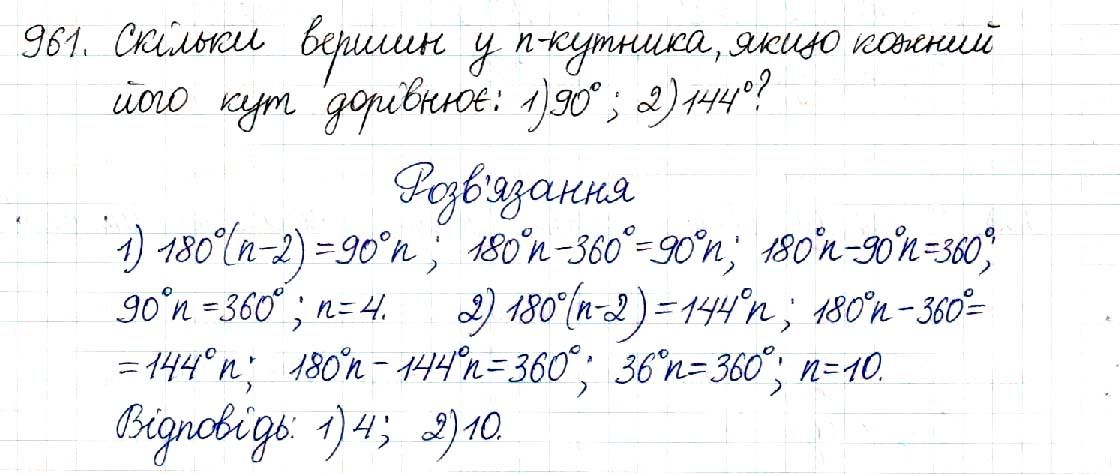 961. Скільки вершин у n-кутника, якщо кожний
його кут дорівнює: 1) 90°; 2) 144°?
Розв'язання
1) 180°(n-2)=90°n; 180°n-360°=90°n; 180°n-90°n=360°;
90°n=360°; n=4. 2) 180°(n-2)=144°n; 180°n-360°=
=144°n; 180°n-144°n=360°; 36°n=360°; n=10.
Відповідь: 1) 4; 2) 10.